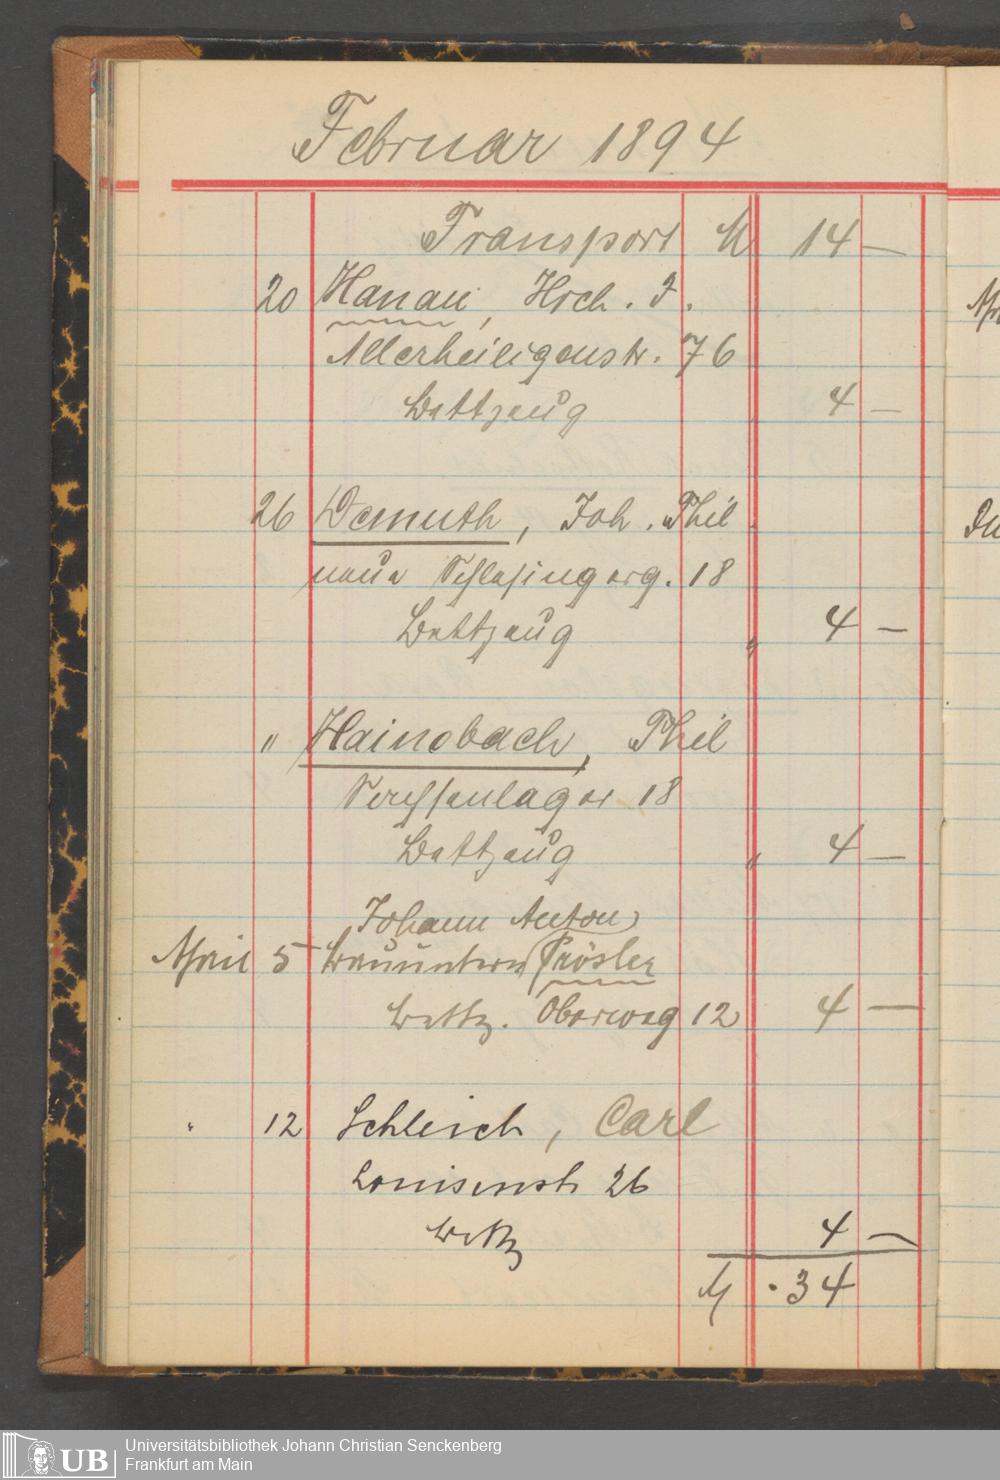 Februar 1894
Transport M 14 —
20 Hanau, Hrch. J.
Allerheiligenstr. 76
Bettzeug 4 —
26 Demuth, Joh. Phil.
neue Schlesingerg. 18
Bettzeug " 4 —
" Hainebach, Phil
Sachsenlager 18
Bettzeug " 4 —
Johann Anton
April 5 Bauuntern Prösler
Bettz. Oberweg 12 4 —
" 12 Schleich, Carl
Louisenstr 26
Bettz 4 —
M . 34
Universitätsbibliothek Johann Christian Senckenberg
Frankfurt am Main
UB